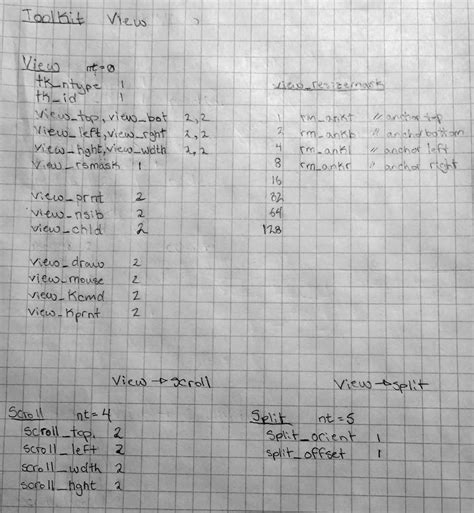 Toolkit View
View nt=0
tk_ntype 1
tk_id 1
view_top, view_bot 2,2
view_left, view_rght 2,2
view_hght, view_wdth 2,2
view_rsmask 1
view_prnt 2
view_nsib 2
view_chld 2
view_draw 2
view_mouse 2
view_Kcmd 2
view_Kprnt 2
view_resizemask
1 rm_ankt // anchor top
2 rm_ankb // anchor bottom
4 rm_ankl // anchor left
8 rm_ankr // anchor right
16
32
64
128
View → scroll
Scroll nt=4
scroll_top, 2
scroll_left 2
scroll_wdth 2
scroll_hght 2
View → split
Split nt=5
split_orient 1
split_offset 1